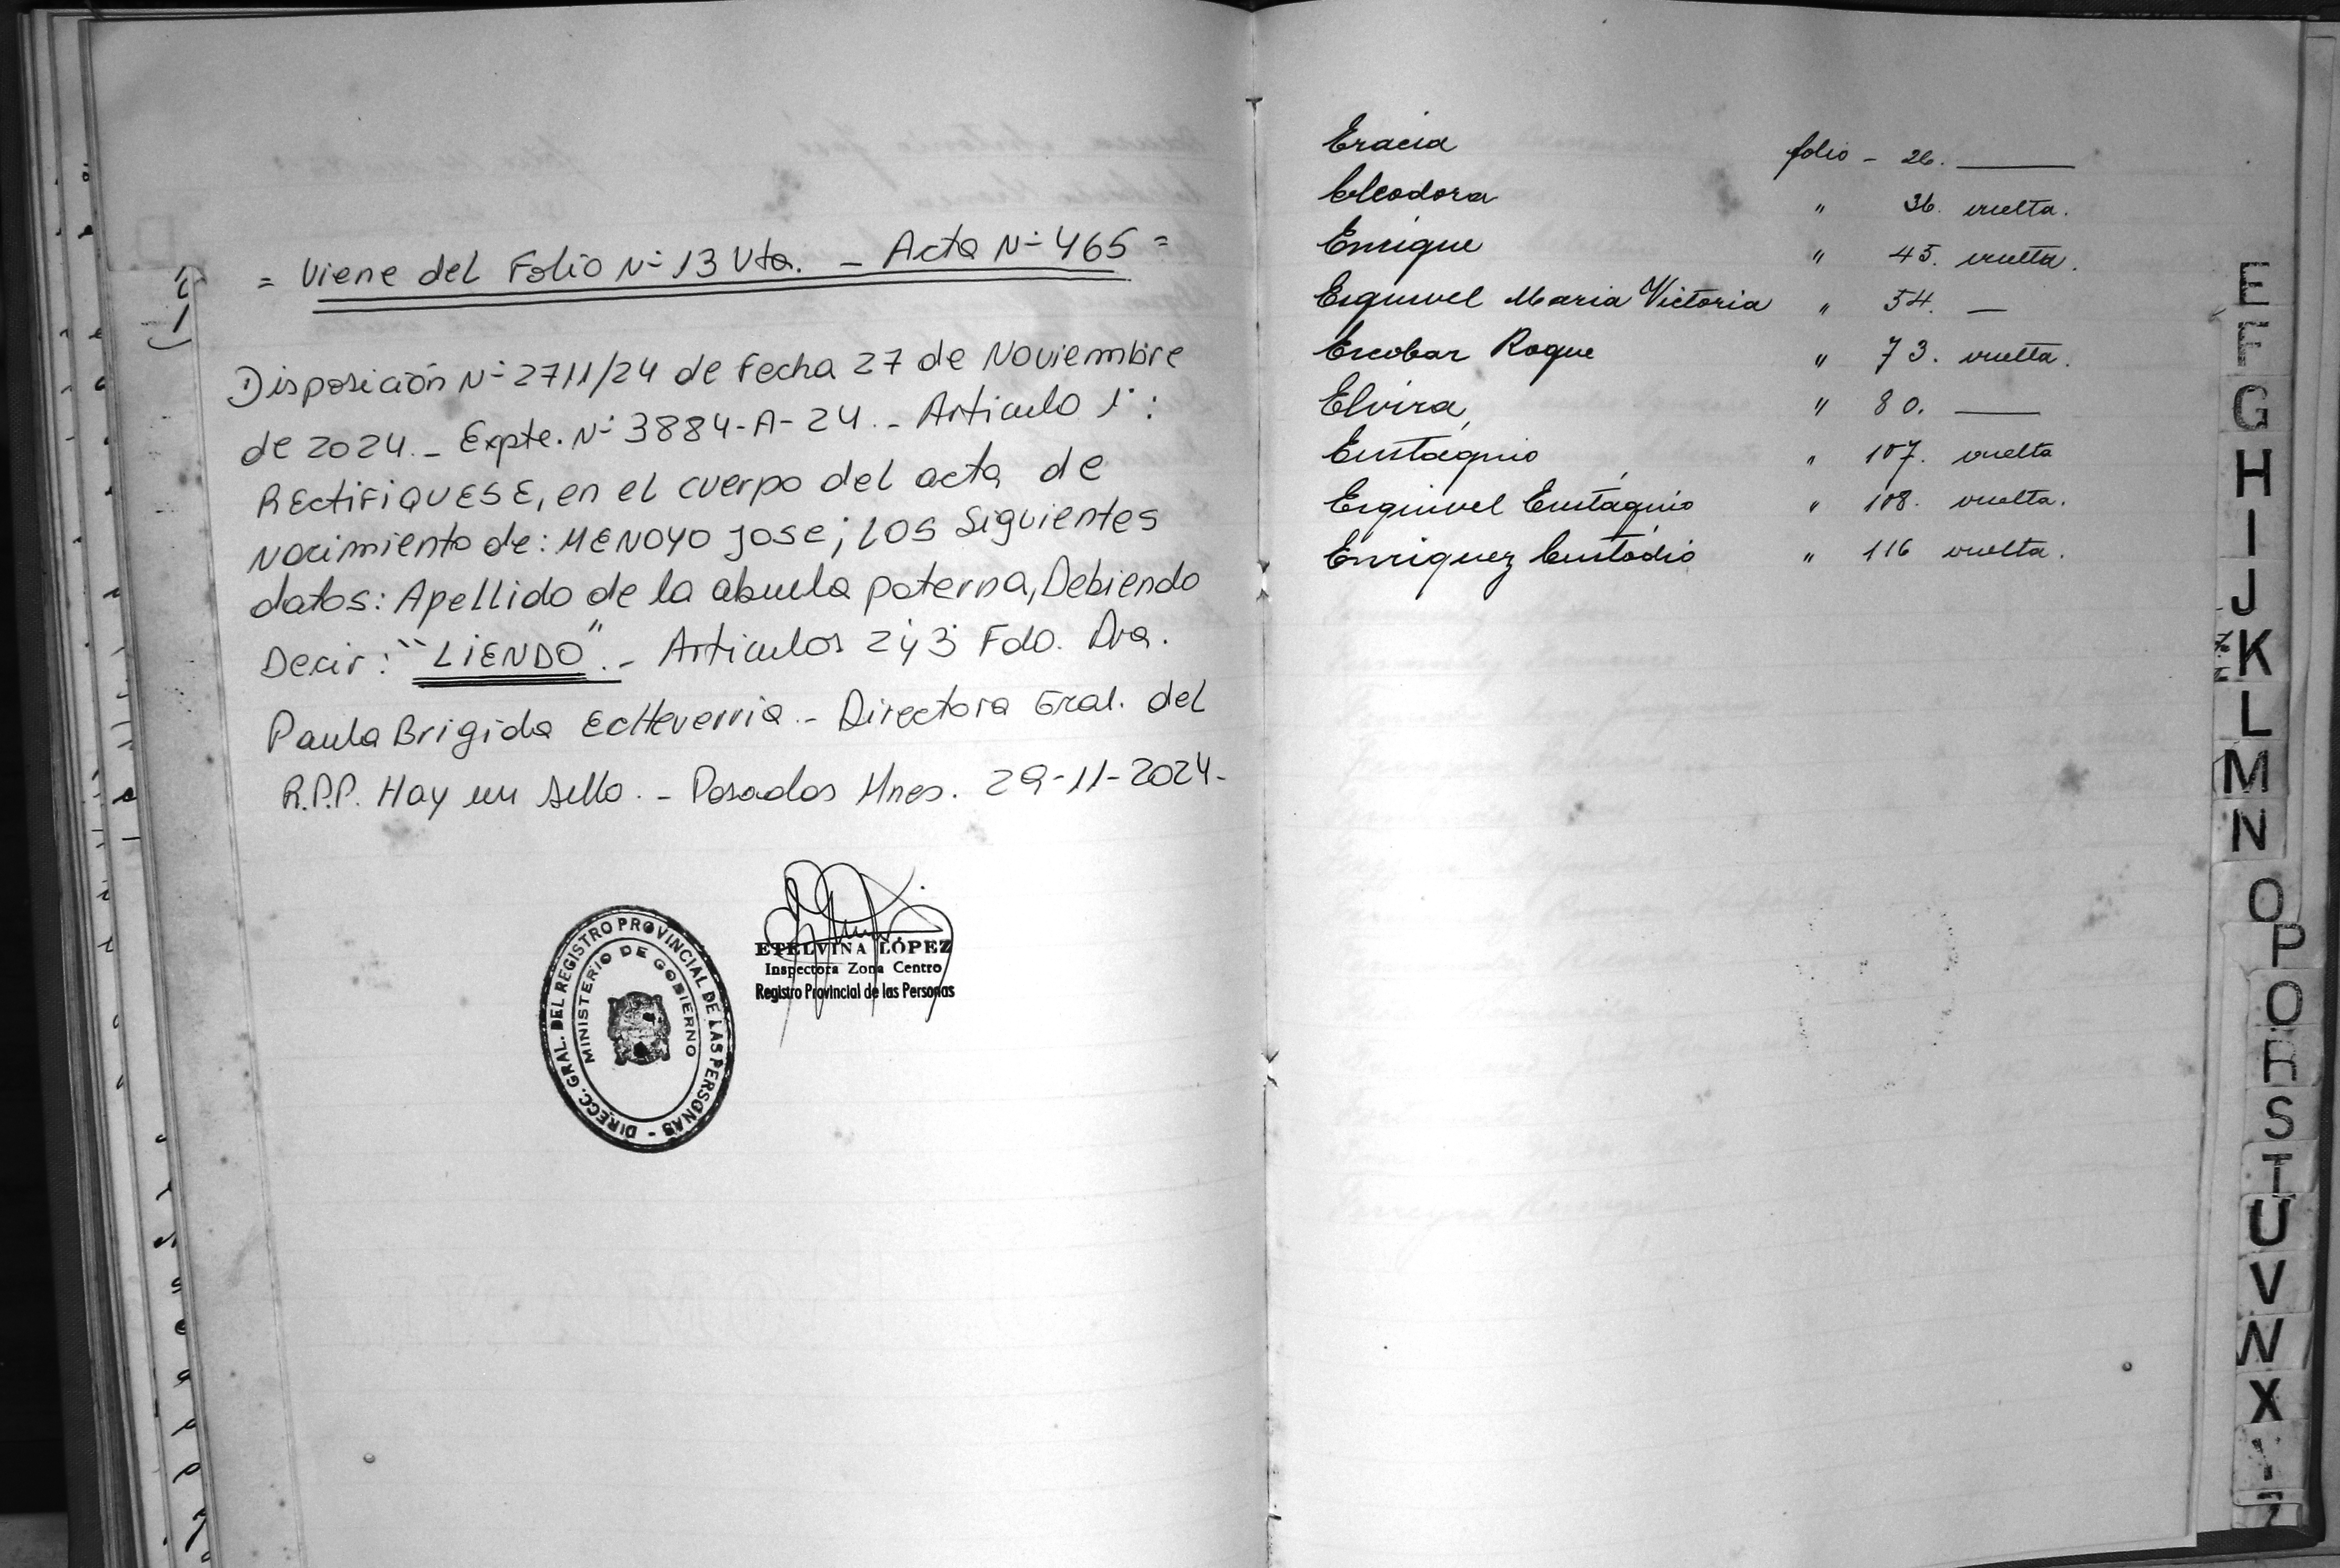 = Viene del Folio Nº 13 Vta. - Acta Nº 465 =
Disposición Nº 2711/24 de Fecha 27 de Noviembre
de 2024.- Expte. Nº 3884-A-24.- Articulo 1º:
RECTIFIQUESE, en el cuerpo del acta de
Nacimiento de: MENOYO JOSE; LOS Siguientes
datos: Apellido de la abuela paterna, Debiendo
Decir: "LIENDO".- Articulos 2 y 3 Fdo. Dra.
Paula Brigida Echeverria.- Directora Gral. del
R.P.P. Hay un sello.- Posadas Mnes. 29-11-2024-
ETELVINA LÓPEZ
Inspectora Zona Centro
Registro Provincial de las Personas
DIRECC. GRAL. DEL REGISTRO PROVINCIAL DE LAS PERSONAS -
MINISTERIO DE GOBIERNO
Eracia folio - 26.
Eleodora " 36. vuelta.
Enrique " 45. vuelta.
Esquivel Maria Victoria " 54. —
Escobar Roque " 73. vuelta.
Elvira, " 80. —
Eustáquio " 107. vuelta
Esquivel Eustáquio " 108. vuelta.
Enriquez Custódio " 116 vuelta.
E
F
G
H
I
J
K
L
M
N
O
P
Q
R
S
T
U
V
W
X